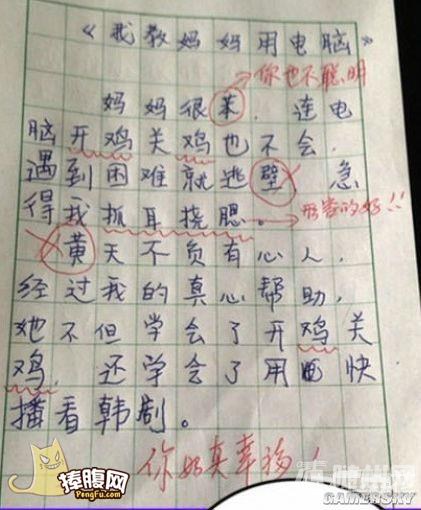 《我教妈妈用电脑》
你也不聪明
妈妈很苯，连电
脑开鸡关鸡也不会，
遇到困难就逃壁，急
得我抓耳挠腮。形容的好!!
黄天不负有心人，
经过我的真心帮助，
她不但学会了开鸡关
鸡，还学会了用快
播看韩剧。
你妈真幸福！
捧腹网
PengFu.com
GAMERSKY